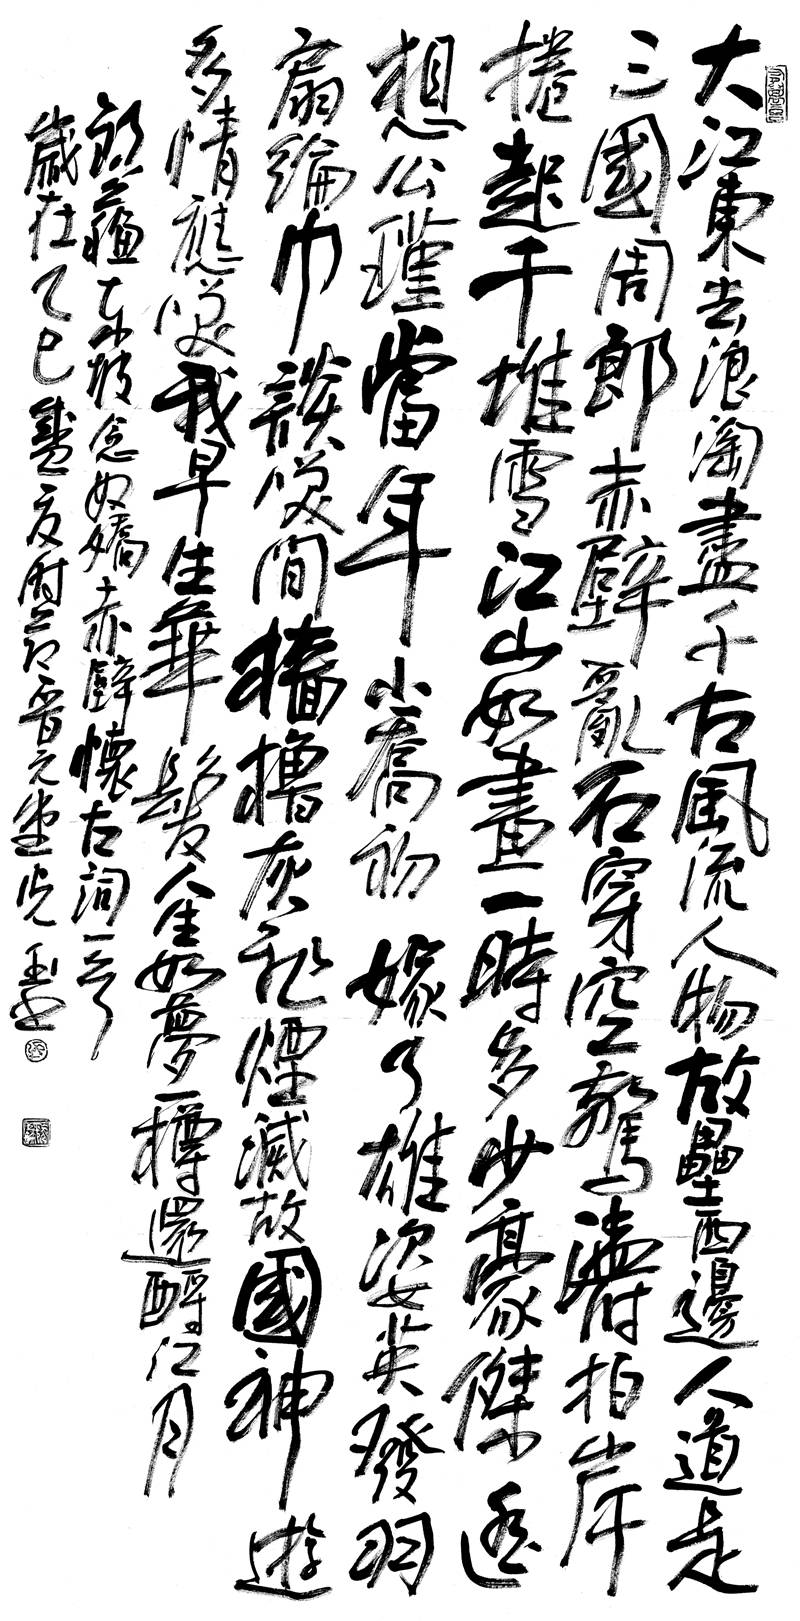 大江東去浪淘盡千古風流人物故壘西邊人道是
三國周郎赤壁亂石穿空驚濤拍岸
捲起千堆雪江山如畫一時多少豪傑遙
想公瑾當年小喬初嫁了雄姿英發羽
扇綸巾談咲間檣櫓灰飛煙滅故國神遊
多情應咲我早生華髮人生如夢一樽還酹江月
蘇東坡念奴嬌赤壁懷古詞一首
歲在乙巳盛夏时节